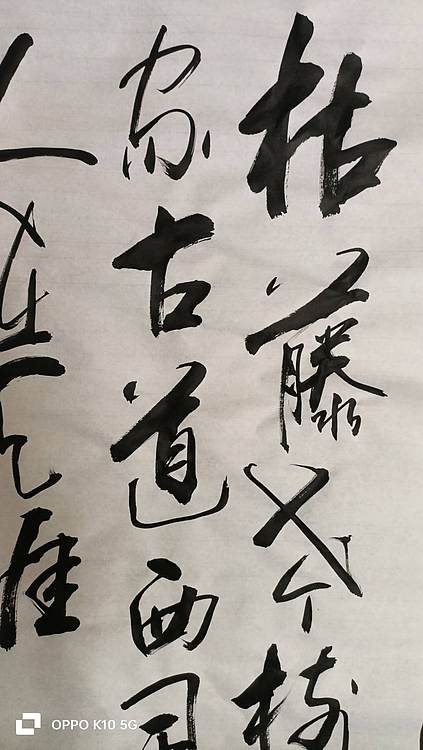 枯藤老树
家古道西风
人在天涯
OPPO K10 5G